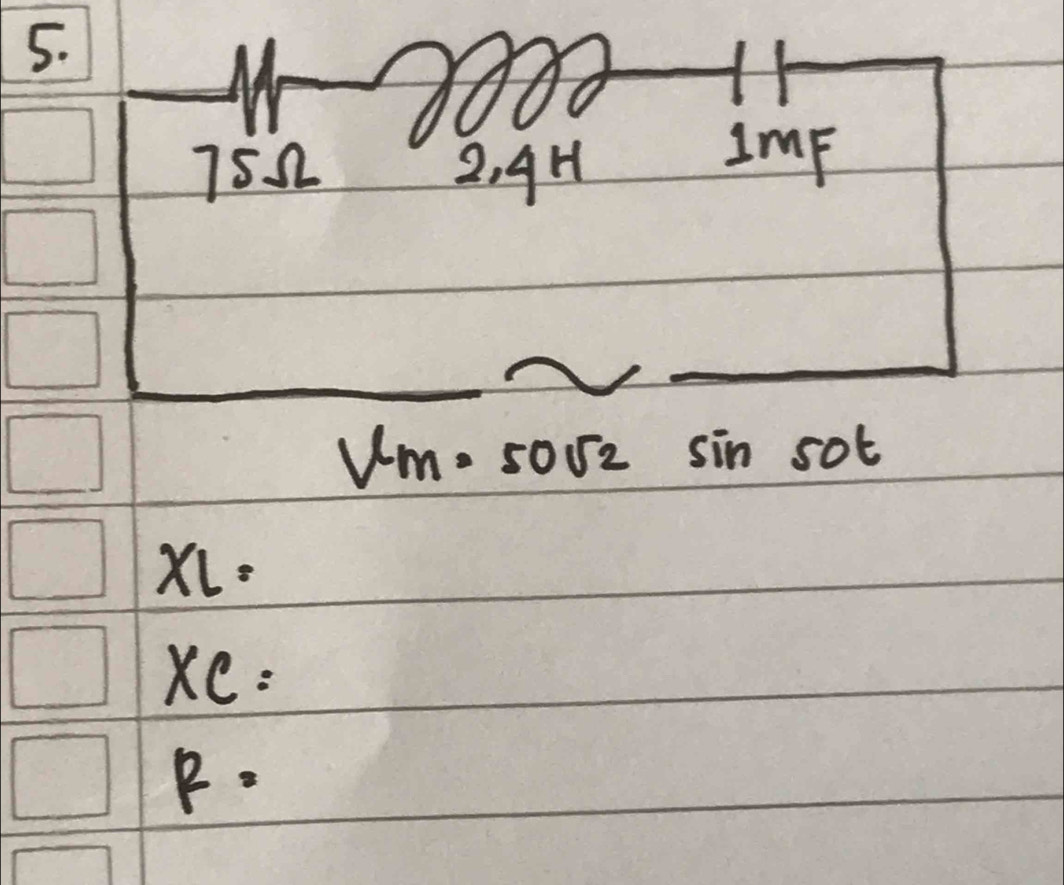 5.
75Ω 2,4H 1mF
Vm = 50√2 sin 50t
XL =
XC =
R =